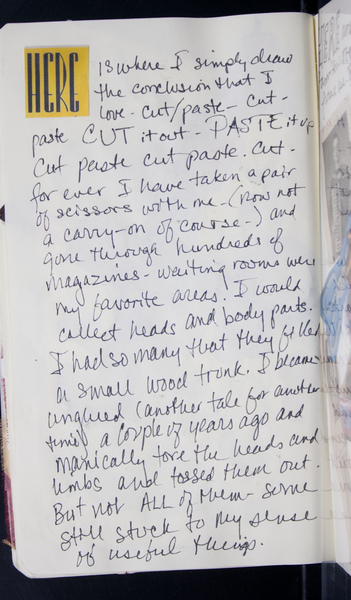 HERE is where I simply draw
the conclusion that I
love - cut/paste - cut -
paste CUT it out - PASTE it up
cut paste cut paste. Cut -
for ever I have taken a pair
of scissors with me - (now not
a carry-on of course -) and
gone through hundreds of
magazines - waiting rooms were
my favorite areas. I would
collect heads and body parts.
I had so many that they filled
a small wood trunk. I became
unglued (another tale for another
time) a couple of years ago and
manically tore the heads and
limbs and tossed them out.
But not ALL of them - some
still stuck to my sense
of useful things.